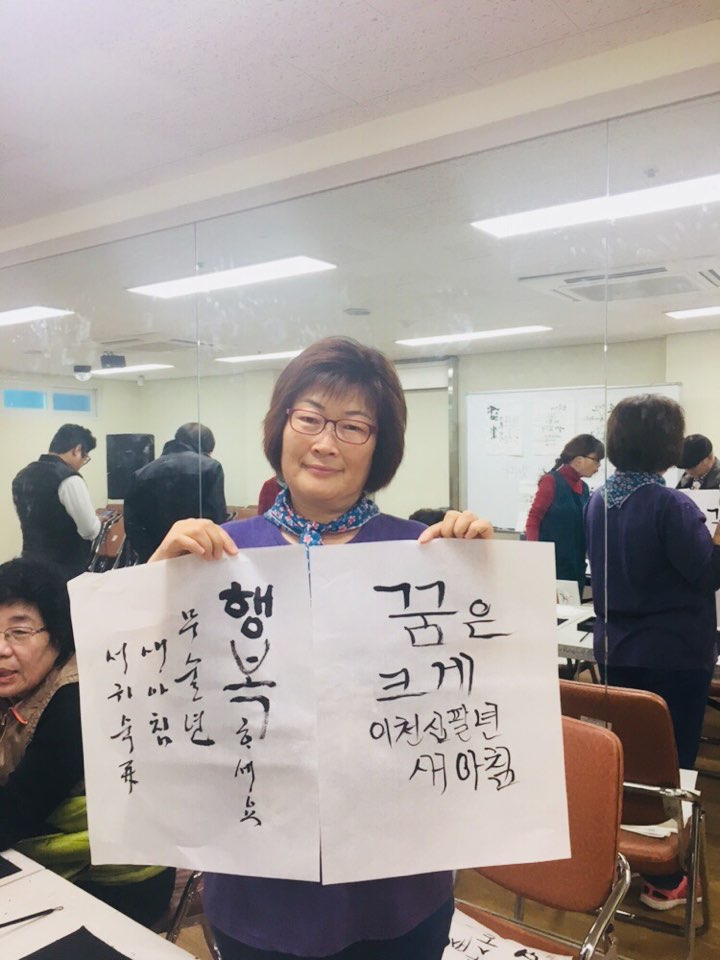 행복하세요
무술년
새아침
서귀숙
꿈은
크게
이천십팔년
새아침